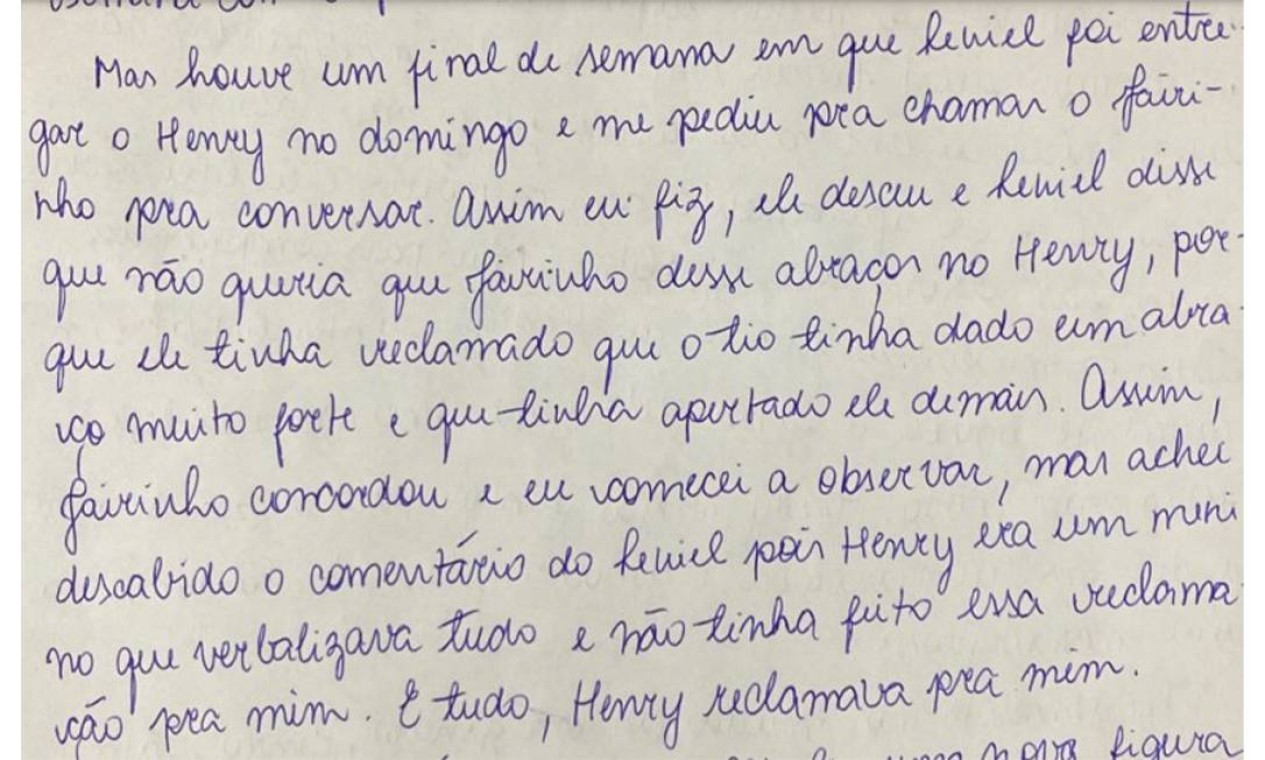 Mas houve um final de semana em que leniel foi entre-
gar o Henry no domingo e me pediu pra chamar o jairi-
nho pra conversar. Assim eu fiz, ele desceu e leniel disse
que não queria que jairinho desse abraços no Henry, por-
que ele tinha reclamado que o tio tinha dado um abra-
ço muito forte e que tinha apertado ele demais. Assim,
jairinho concordou e eu comecei a observar, mas achei
descabido o comentário do leniel pois Henry era um meni
no que verbalizava tudo e não tinha feito essa reclama
ção pra mim. E tudo, Henry reclamava pra mim.
nova figura